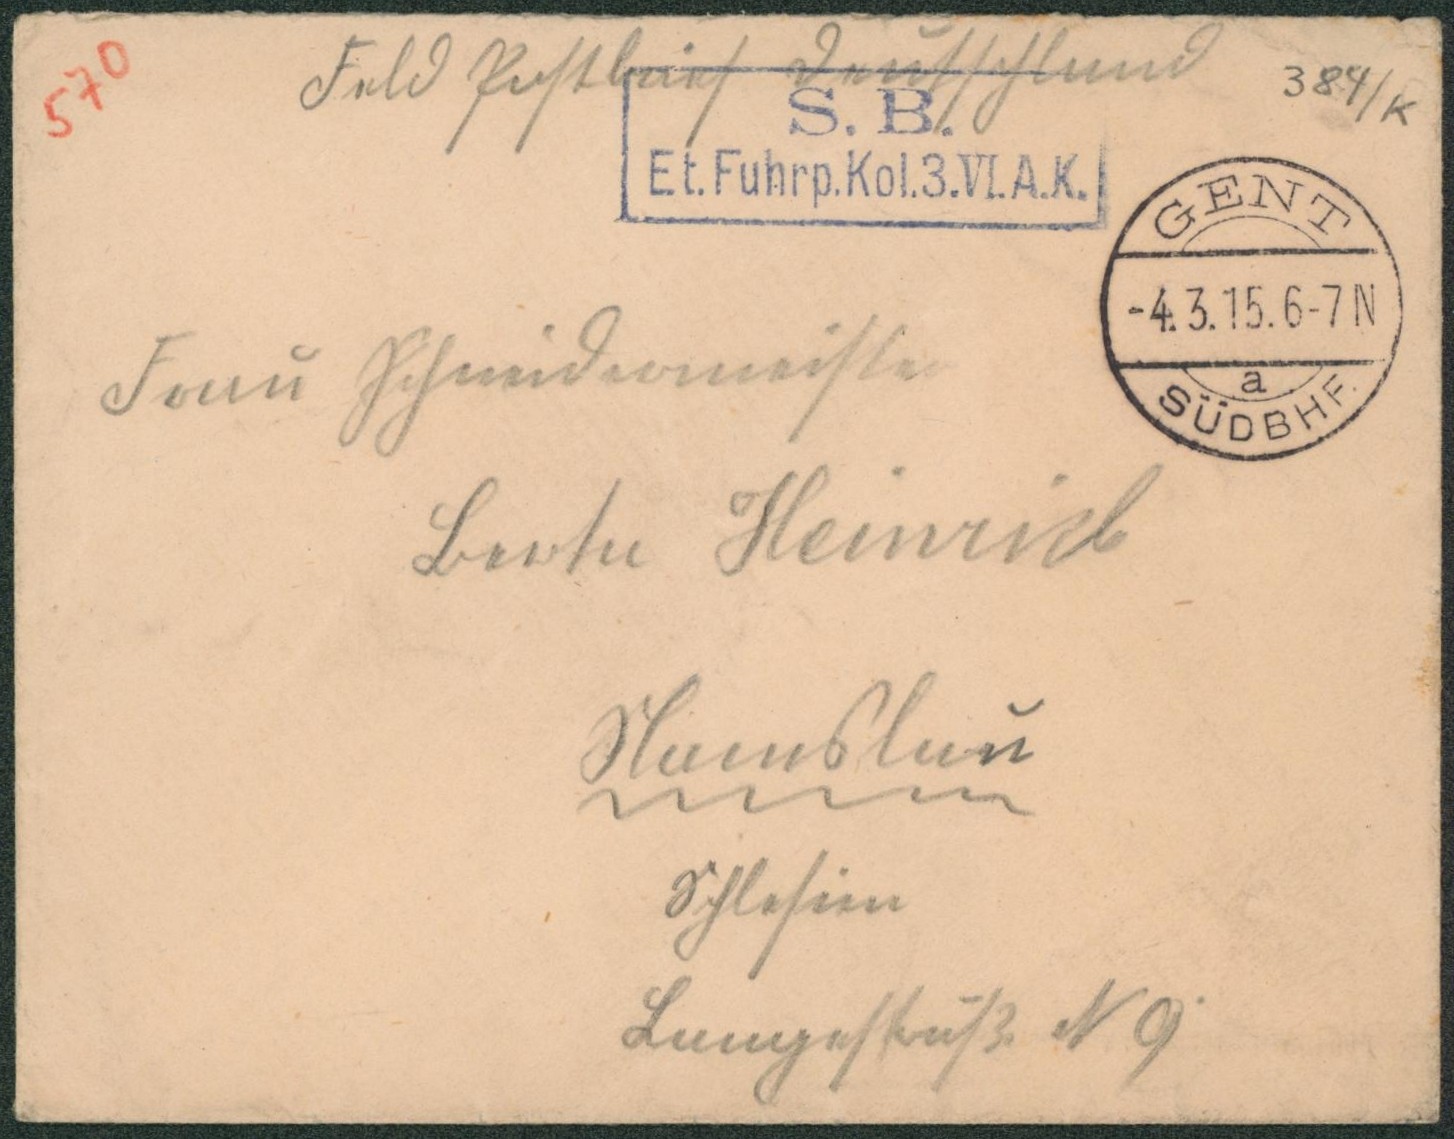 570
Feld Postbrief Deutschland
384/K
S. B.
Et. Fuhrp. Kol. 3. VI. A. K.
GENT
-4.3.15. 6-7 N
a
SÜDBHF.
Frau Schneidermeister
Berta Heinrich
Namslau
Schlesien
Langestraße N 9